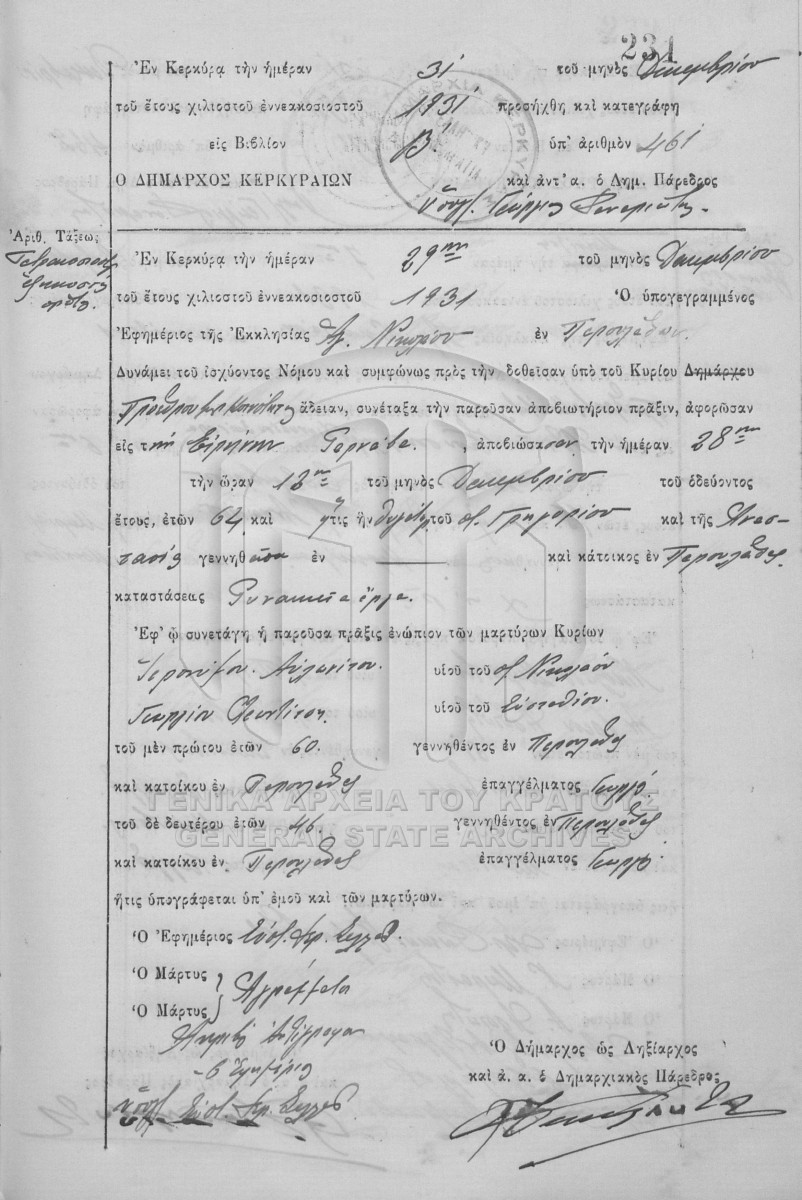 231
Ἐν Κερκύρᾳ τὴν ἡμέραν 31 τοῦ μηνὸς Δεκεμβρίου
τοῦ ἔτους χιλιοστοῦ ἐννεακοσιοστοῦ 1931 προσήχθη καὶ κατεγράφη
εἰς Βιβλίον Β. ὑπ' ἀριθμὸν 461
Ο ΔΗΜΑΡΧΟΣ ΚΕΡΚΥΡΑΙΩΝ καὶ ἀντ' α. ὁ Δημ. Πάρεδρος
Γεώργιος
Ἀριθ. Τάξεως
Ἐν Κερκύρᾳ τὴν ἡμέραν 29ην τοῦ μηνὸς Δεκεμβρίου
τοῦ ἔτους χιλιοστοῦ ἐννεακοσιοστοῦ 1931 Ὁ ὑπογεγραμμένος
Ἐφημέριος τῆς Ἐκκλησίας Ἁγ. Νικολάου ἐν Περουλάδων.
Δυνάμει τοῦ ἰσχύοντος Νόμου καὶ συμφώνως πρὸς τὴν δοθεῖσαν ὑπὸ τοῦ Κυρίου Δημάρχου
Προέδρου Κοινότητος ἄδειαν, συνέταξα τὴν παροῦσαν ἀποβιωτήριον πρᾶξιν, ἀφορῶσαν
εἰς τὴν Εἰρήνην, ἀποβιώσασαν τὴν ἡμέραν 28ην
τὴν ὥραν 12ην τοῦ μηνὸς Δεκεμβρίου τοῦ ὁδεύοντος
ἔτους, ἐτῶν 64 καὶ ἥτις ἦν θυγάτηρ τοῦ Γρηγορίου καὶ τῆς Ἀνασ-
τασίας γεννηθεῖσα ἐν — καὶ κάτοικος ἐν Περουλάδες
καταστάσεως Γυναικεῖα ἔργα.
Ἐφ' ᾧ συνετάγη ἡ παροῦσα πρᾶξις ἐνώπιον τῶν μαρτύρων Κυρίων
Ἱερονύμου Αὐλωνίτου υἱοῦ τοῦ Νικολάου
Γεωργίου υἱοῦ τοῦ Εὐσταθίου.
τοῦ μὲν πρώτου ἐτῶν 60. γεννηθέντος ἐν Περουλάδες
καὶ κατοίκου ἐν Περουλάδες ἐπαγγέλματος Γεωργός.
ΓΕΝΙΚΑ ΑΡΧΕΙΑ ΤΟΥ ΚΡΑΤΟΥΣ
τοῦ δὲ δευτέρου ἐτῶν 46. γεννηθέντος ἐν Περουλάδες
GENERAL STATE ARCHIVES
καὶ κατοίκου ἐν Περουλάδες ἐπαγγέλματος Γεωργός
ἥτις ὑπογράφεται ὑπ' ἐμοῦ καὶ τῶν μαρτύρων.
Ὁ Ἐφημέριος
Ὁ Μάρτυς
Ὁ Μάρτυς
Ἀγράμματοι
Ἀκριβὲς Ἀντίγραφον
Ὁ Ἐφημέριος
Ὁ Δήμαρχος ὡς Ληξίαρχος
καὶ ἀ. ἀ. ὁ Δημαρχιακὸς Πάρεδρος